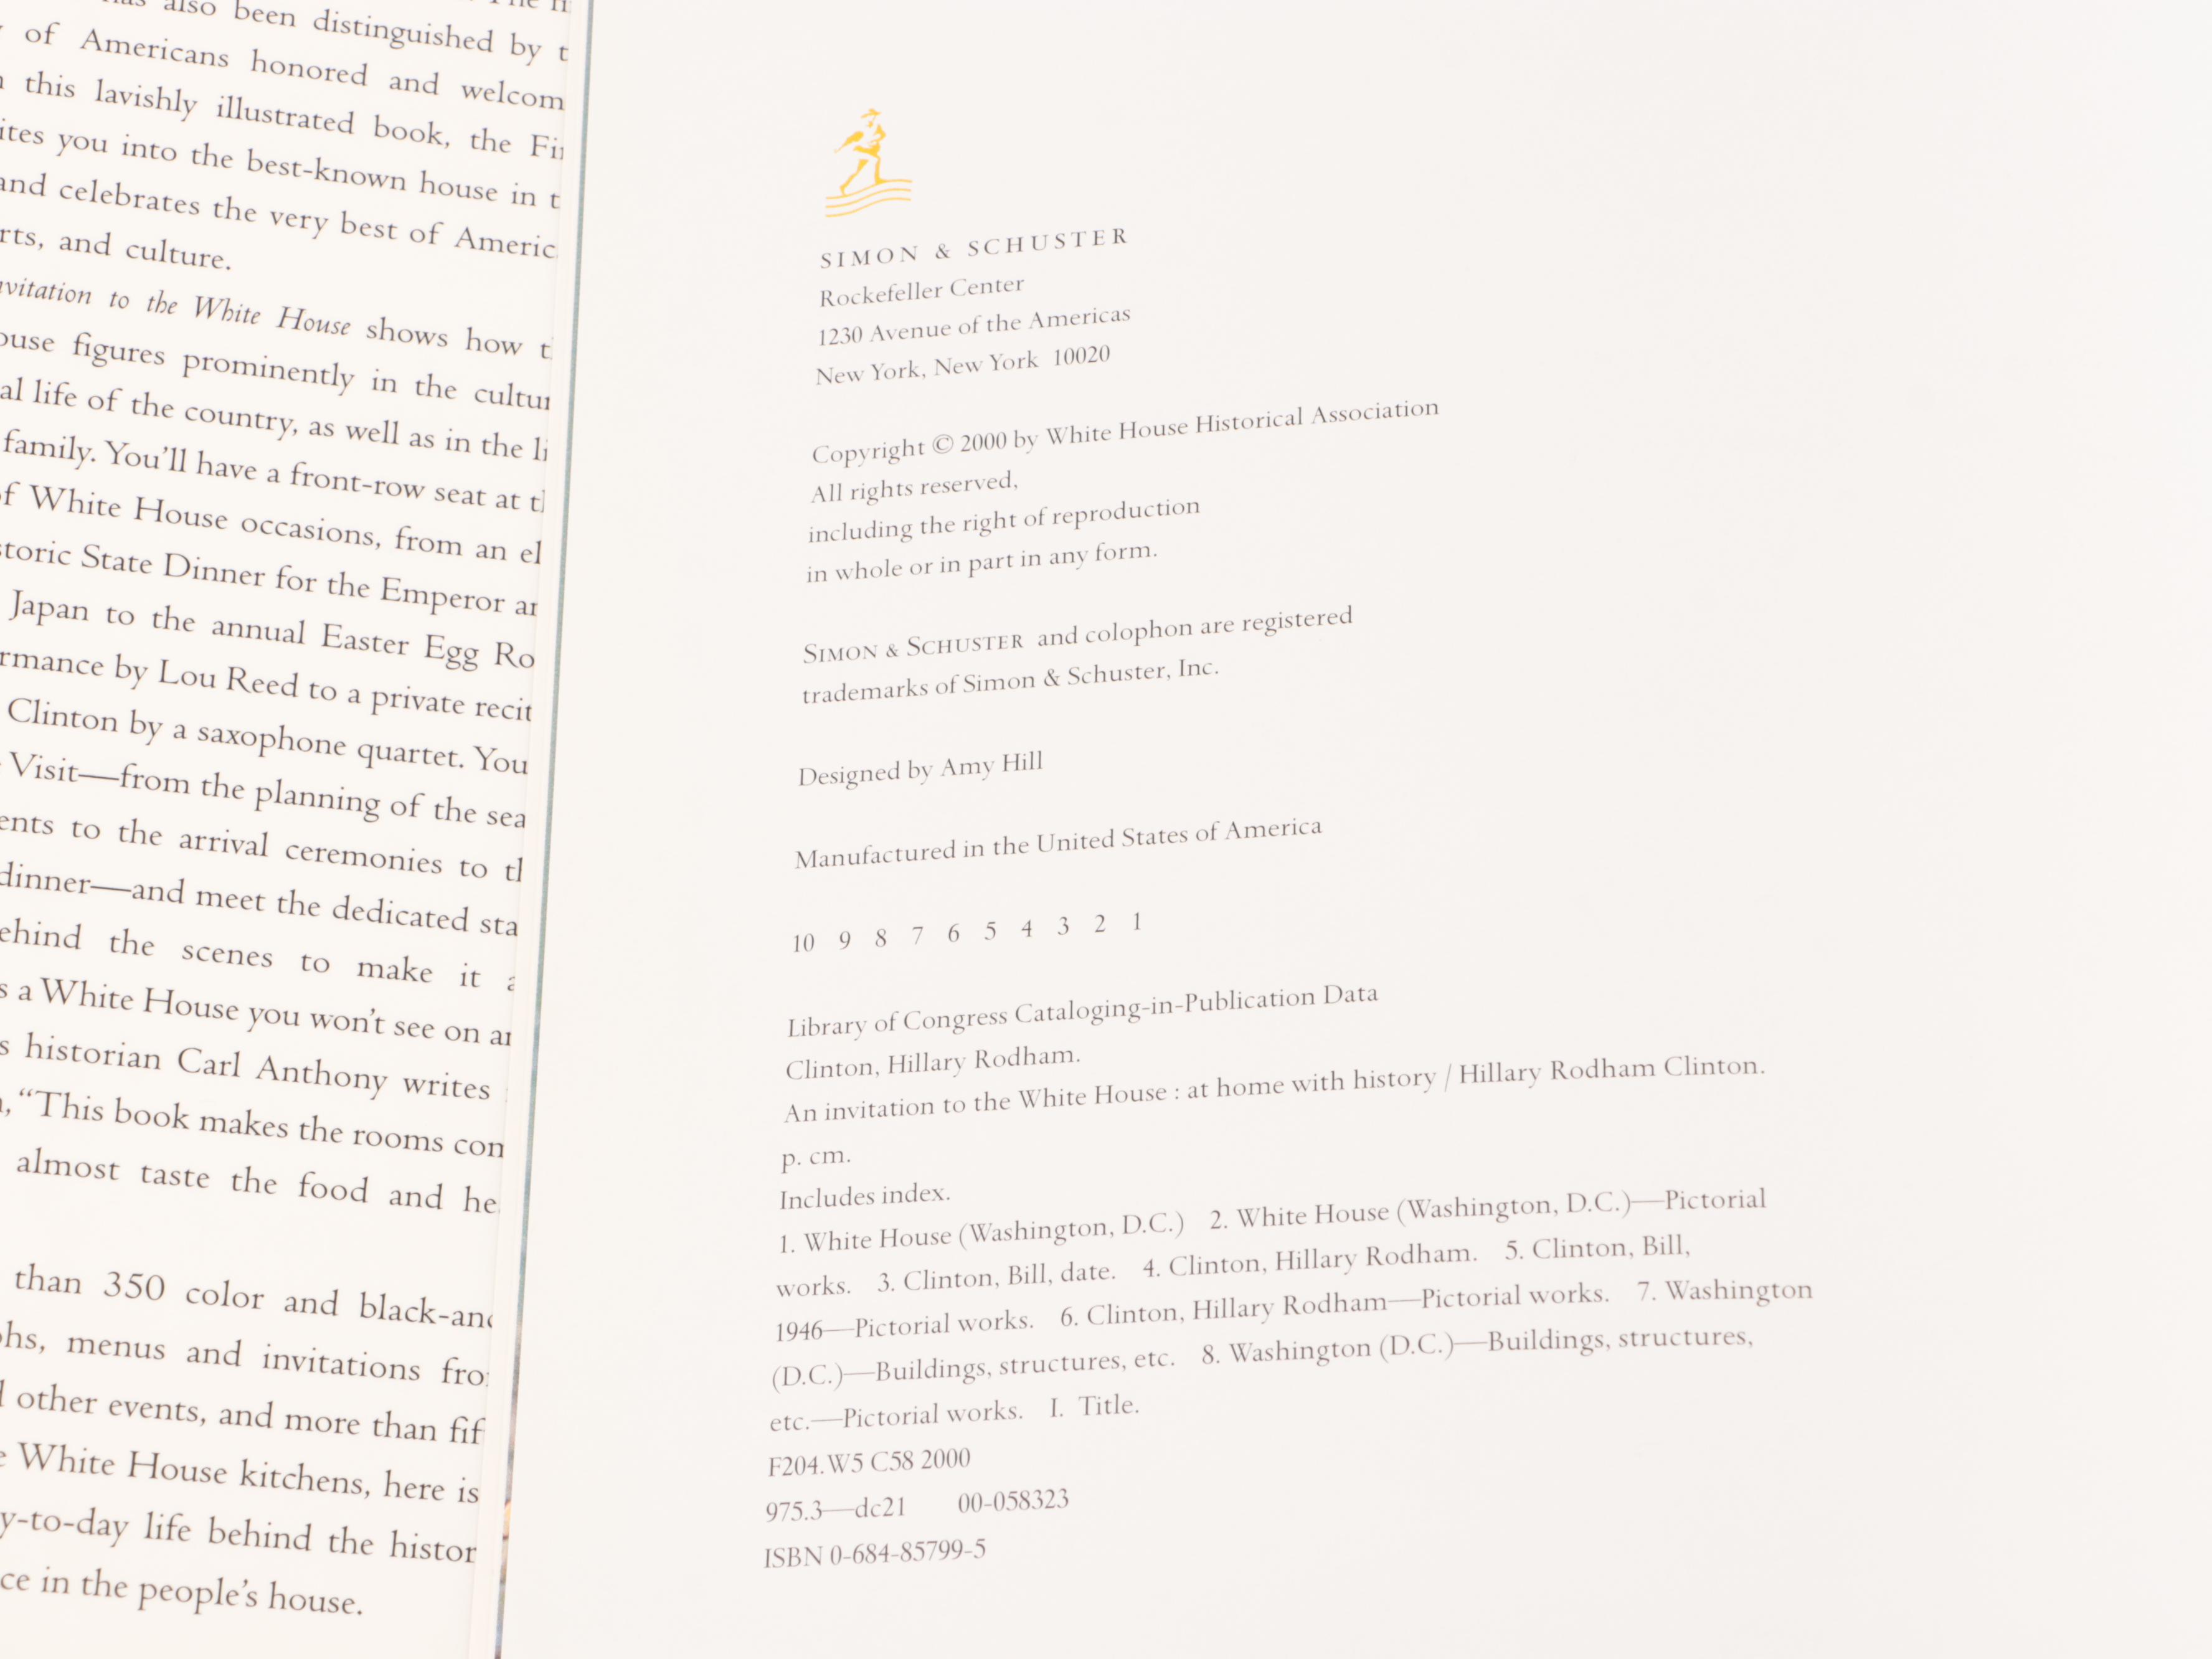 also been distinguished by
of Americans honored and welcom
this lavishly illustrated book, the
ites you into the best-known house in
and celebrates the very best of Americ
rts, and culture.
vitation to the White House shows how
ouse figures prominently in the cultur
al life of the country, as well as in the
family. You'll have a front-row seat at
of White House occasions, from an el
storic State Dinner for the Emperor
Japan to the annual Easter Egg Ro
rmance by Lou Reed to a private recit
Clinton by a saxophone quartet. You
Visit—from the planning of the sea
ents to the arrival ceremonies to
dinner—and meet the dedicated sta
ehind the scenes to make it
s a White House you won't see on
s historian Carl Anthony writes
, "This book makes the rooms com
almost taste the food and he
than 350 color and black-and
hs, menus and invitations fro
other events, and more than fif
White House kitchens, here is
y-to-day life behind the histor
ce in the people's house.
SIMON & SCHUSTER
Rockefeller Center
1230 Avenue of the Americas
New York, New York 10020
Copyright © 2000 by White House Historical Association
All rights reserved,
including the right of reproduction
in whole or in part in any form.
SIMON & SCHUSTER and colophon are registered
trademarks of Simon & Schuster, Inc.
Designed by Amy Hill
Manufactured in the United States of America
10 9 8 7 6 5 4 3 2 1
Library of Congress Cataloging-in-Publication Data
Clinton, Hillary Rodham.
An invitation to the White House : at home with history / Hillary Rodham Clinton.
p. cm.
Includes index.
1. White House (Washington, D.C.) 2. White House (Washington, D.C.)—Pictorial
works. 3. Clinton, Bill, date. 4. Clinton, Hillary Rodham. 5. Clinton, Bill,
1946—Pictorial works. 6. Clinton, Hillary Rodham—Pictorial works. 7. Washington
(D.C.)—Buildings, structures, etc. 8. Washington (D.C.)—Buildings, structures,
etc.—Pictorial works. I. Title.
F204.W5 C58 2000
975.3—dc21 00-058323
ISBN 0-684-85799-5